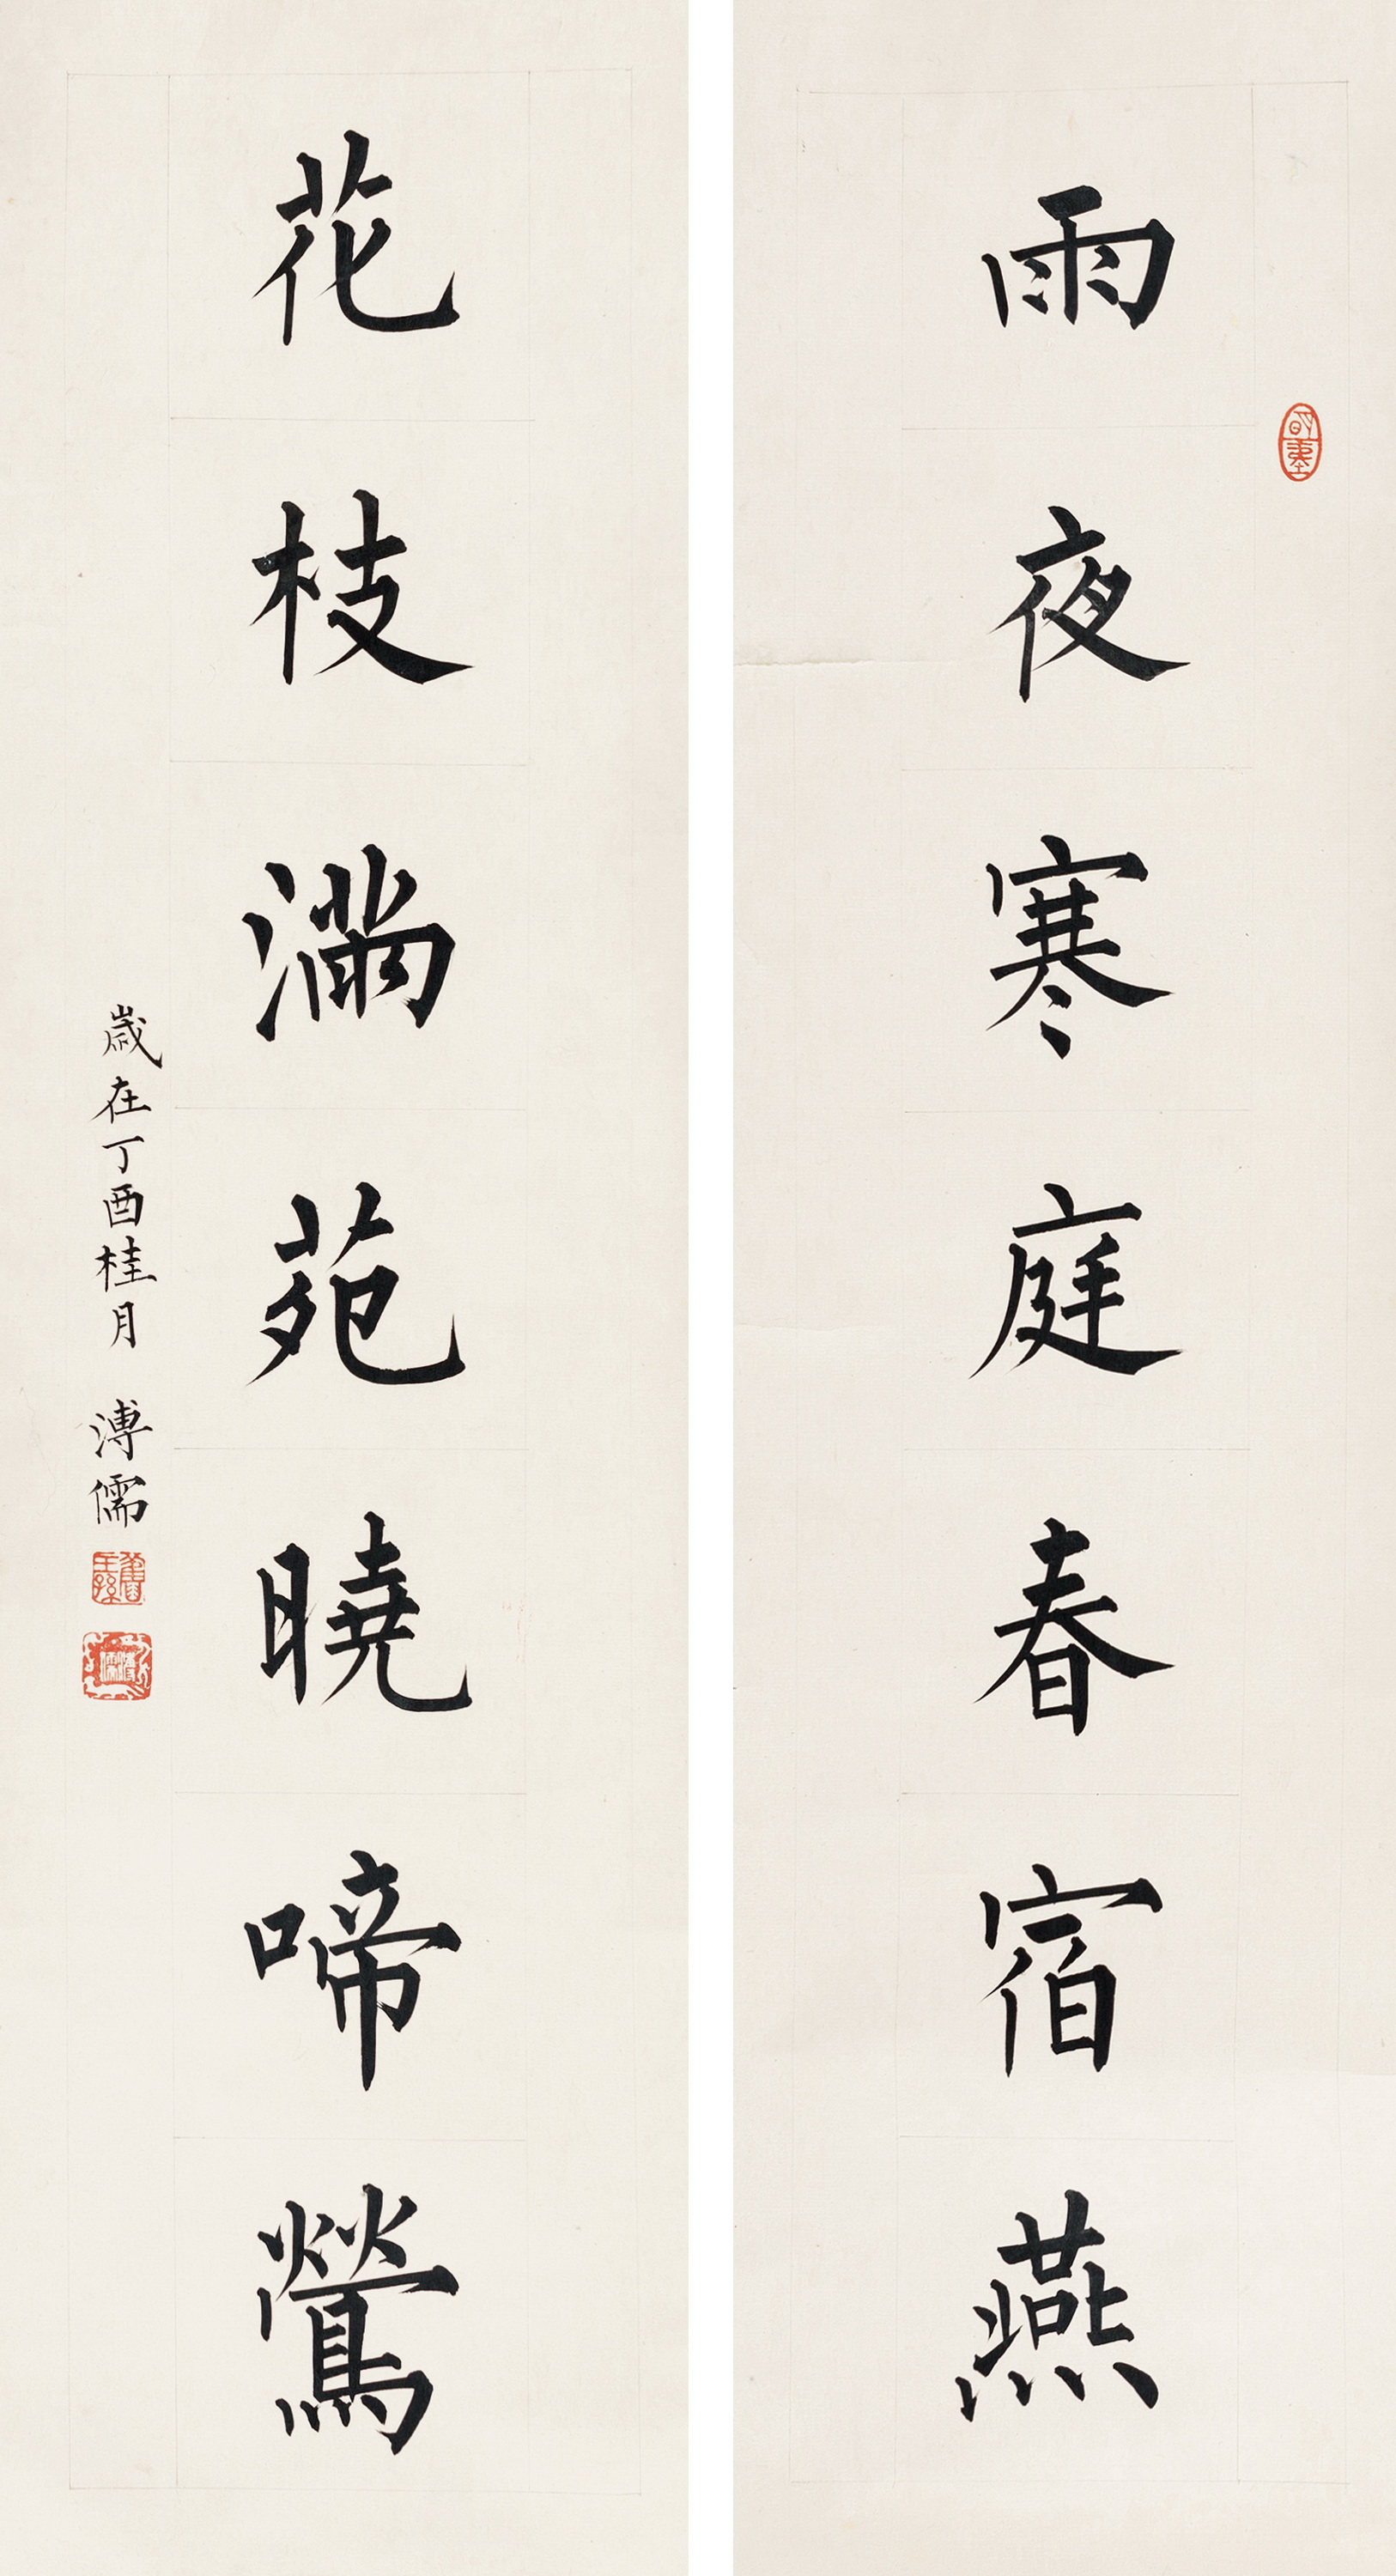 雨夜寒庭春宿燕
花枝滿苑曉啼鶯
歲在丁酉桂月 溥儒
舊王孫
溥儒